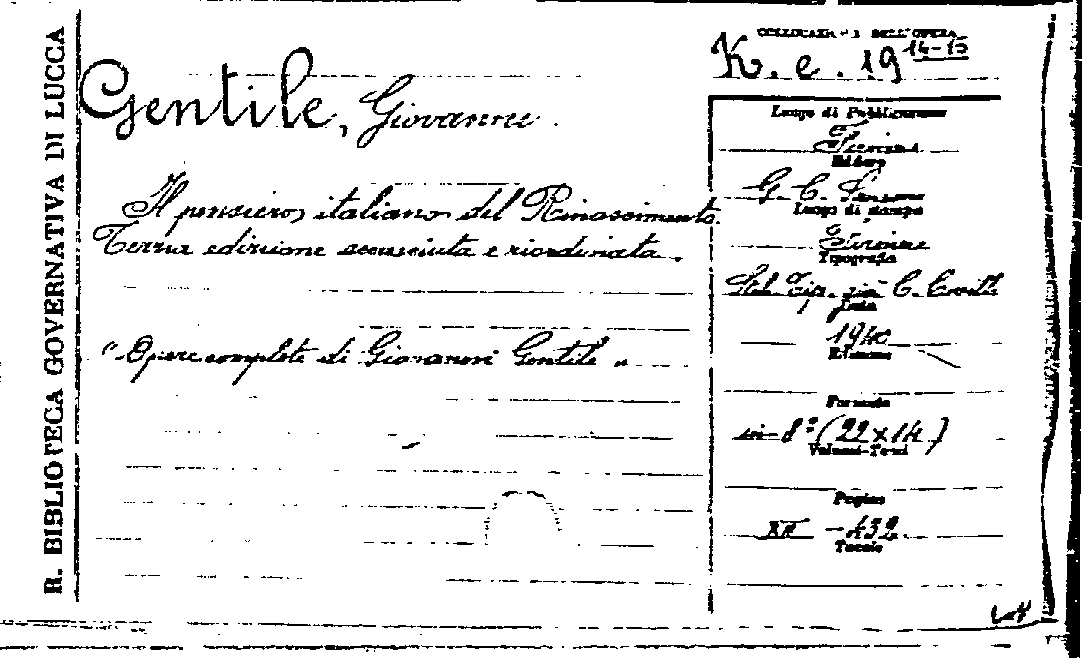 R. BIBLIOTECA GOVERNATIVA DI LUCCA
Gentile, Giovanni.
Il pensiero italiano del Rinascimento.
Terza edizione accresciuta e riordinata.
"Opere complete di Giovanni Gentile"
COLLOCAZIONE DELL'OPERA
K. e. 19 14-15
Luogo di Pubblicazione
Firenze
Editore
G. C. Sansoni
Luogo di stampa
Firenze
Tipografia
Stab. Tip. già C. Civelli
Data
1940
Edizione
Formato
in-8º (22x14)
Volumi-Tomi
Pagine
-432
Tavole